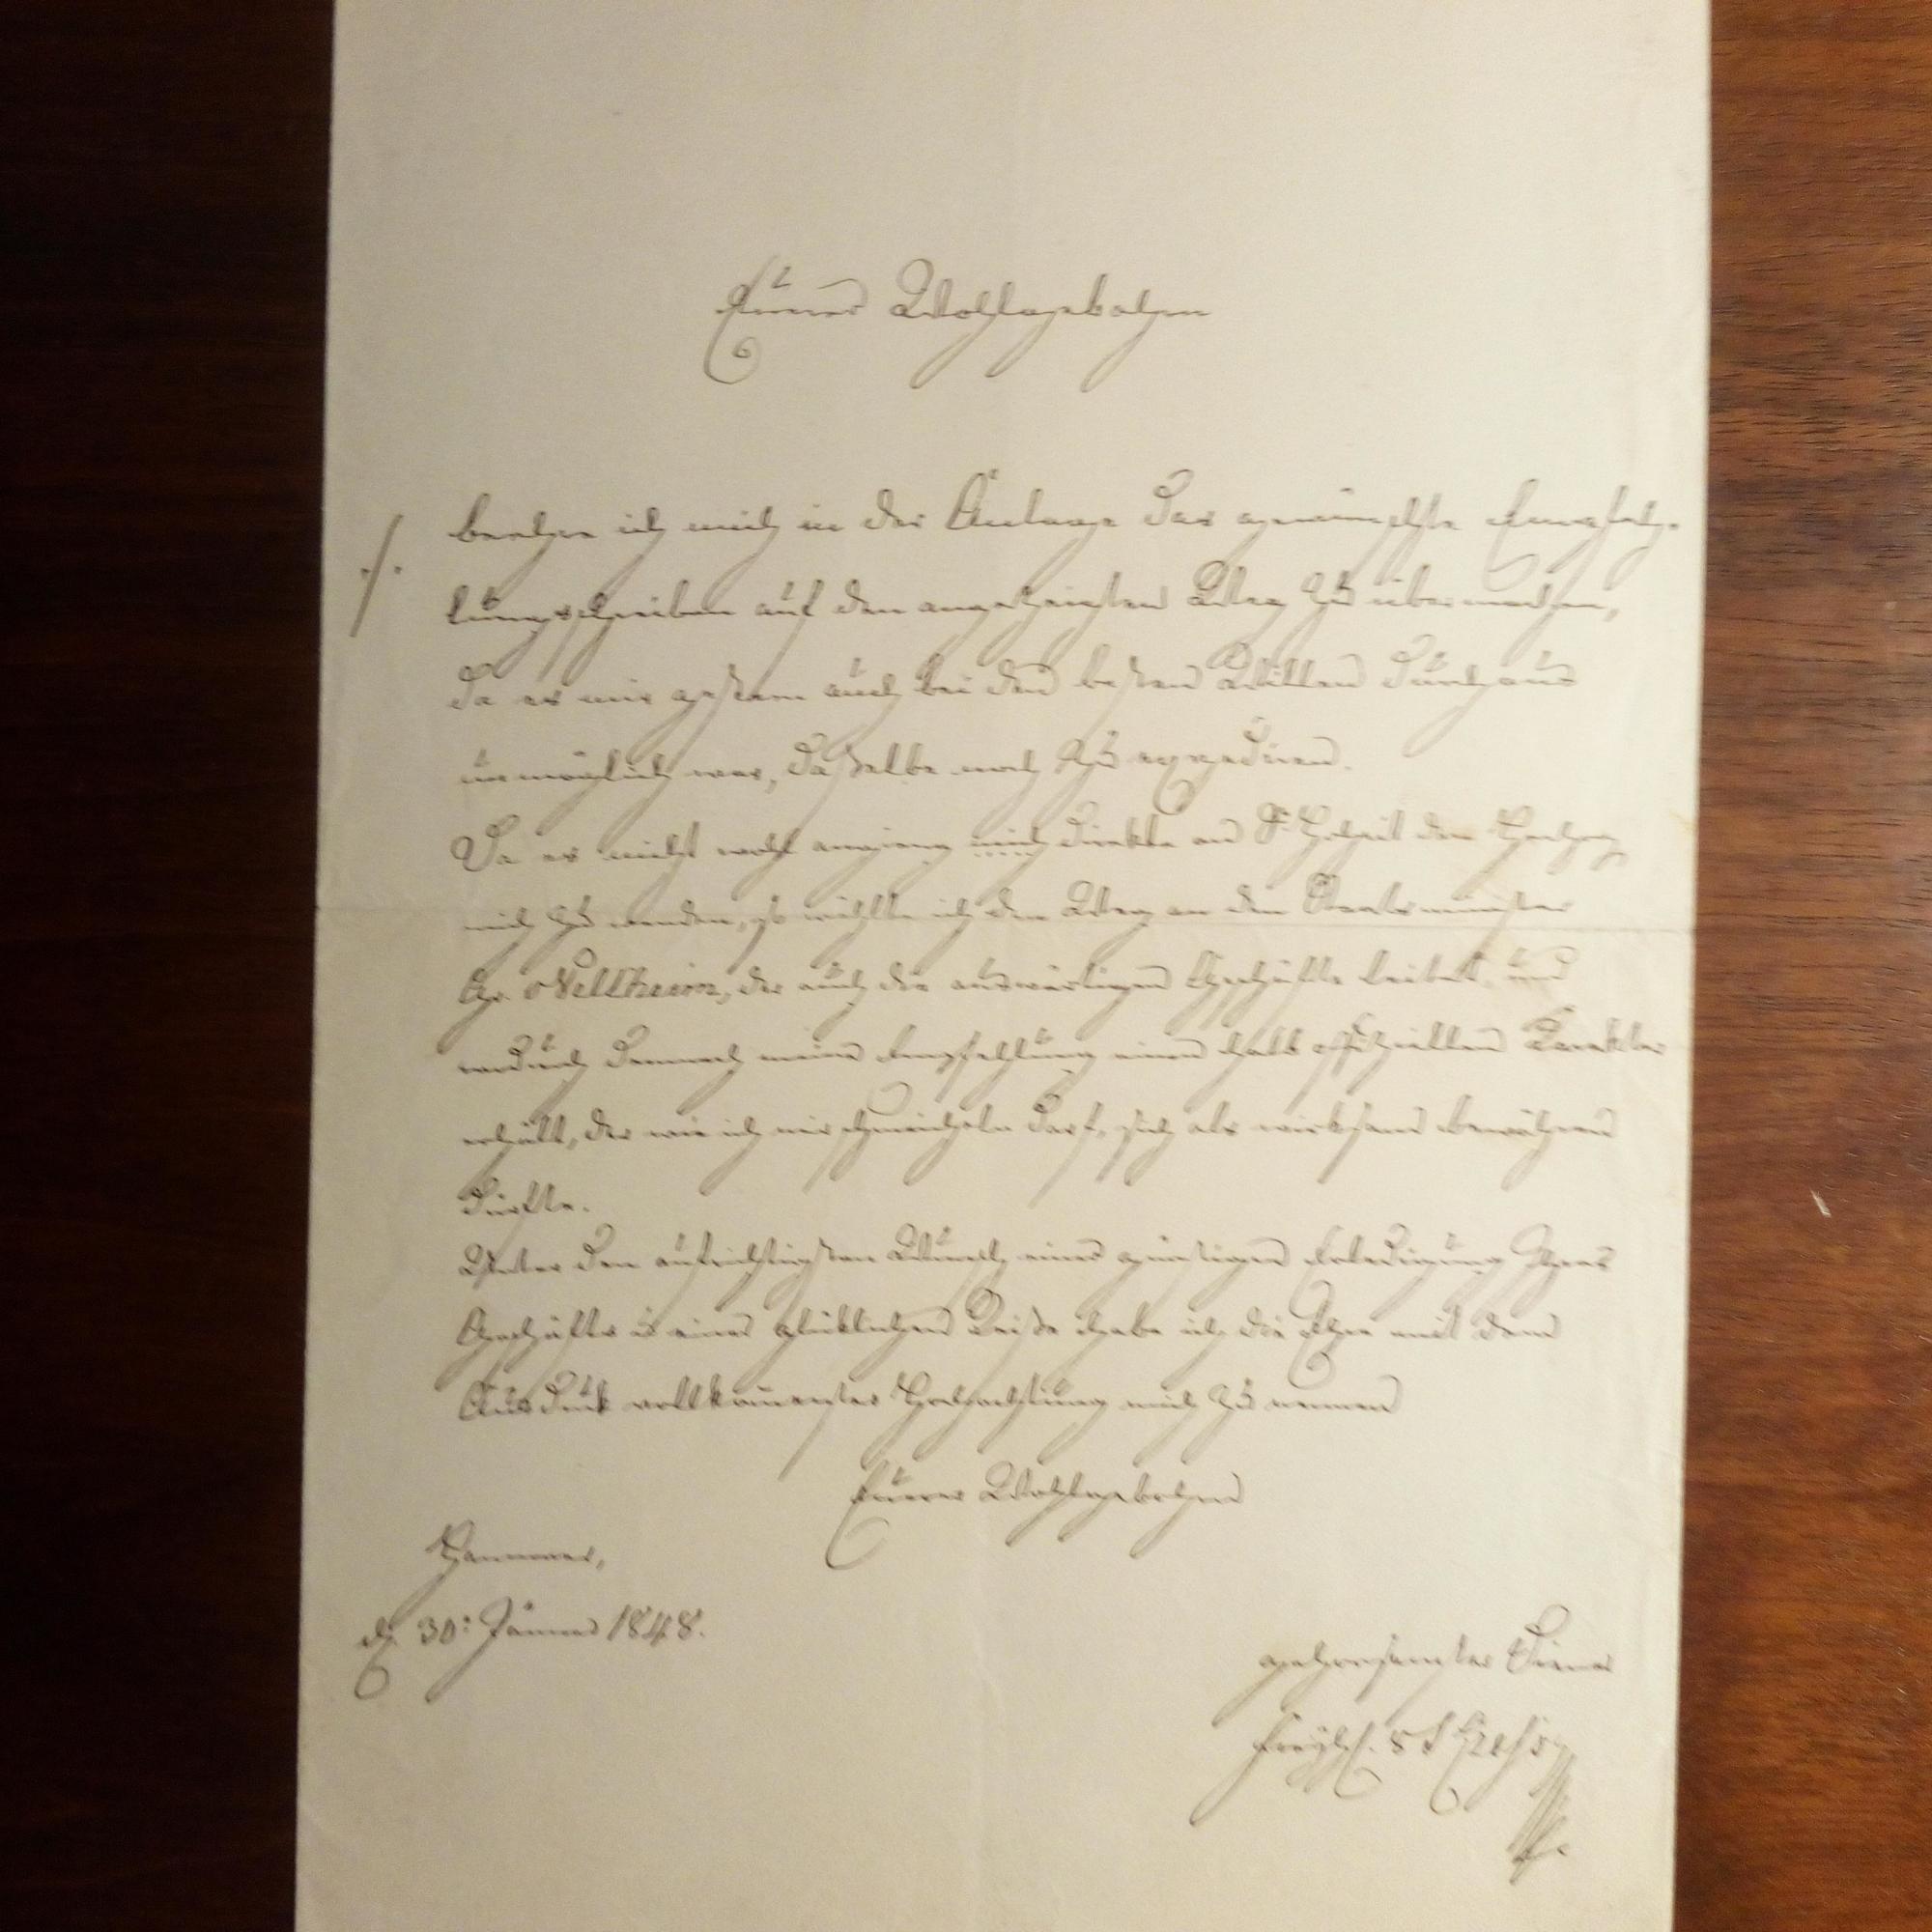 Euerer Wohlgebohrn
./. beehre ich mich in der Anlage das gewünschte Empfeh-
lungsschreiben auf den angezeigten Weg zu übermachen,
da es mir gestern auch bei dem besten Willen durchaus
unmöglich war, dasselbe noch zu expediren.
Da es nicht wohl angieng mich direkte an Sr Hoheit den Herzog
mich zu wenden, so wählte ich den Weg an den Staatsminister
Gr. Veltheim, der auch die auswärtigen Geschäfte leitet, und
wodurch demnach meine Empfehlung einen halb offiziellen Karakter
erhält, der wie ich mir schmeicheln darf, sich als wirksam bewähren
dürfte.
Unter dem aufrichtigsten Wunsch einer günstigen Erledigung Ihres
Geschäfts u einer glücklichen Reise habe ich die Ehre mit dem
Ausdruck vollkommenster Hochachtung mich zu nennen
Euerer Wohlgebohrn
Hannover,
d. 30: Jänner 1848.
gehorsamster Diener